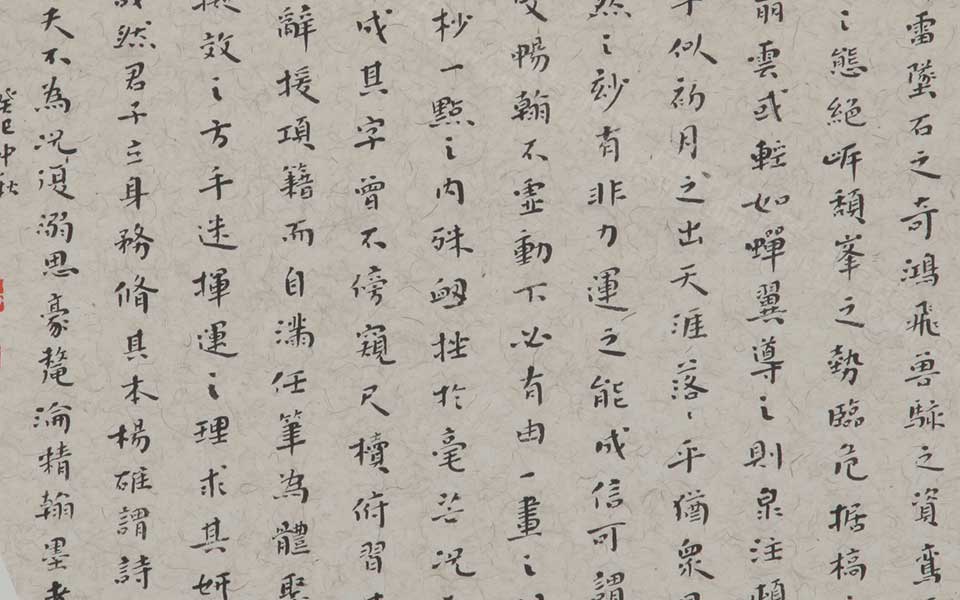 雷墜石之奇鴻飛獸駭之資鸞
之態絕岸頹峯之勢臨危据槁
雲或輕如蟬翼導之則泉注頓
乎似初月之出天涯落〻乎猶眾
然之妙有非力運之能成信可謂
暢翰不虛動下必有由一畫之
杪一點之內殊衄挫於毫芒況
成其字曾不傍窺尺櫝俯習
辭援項籍而自滿任筆為體聚
效之方手迷揮運之理求其妍
然君子立身務脩其本楊雄謂詩
夫不為況復溺思豪釐淪精翰墨
癸巳仲秋